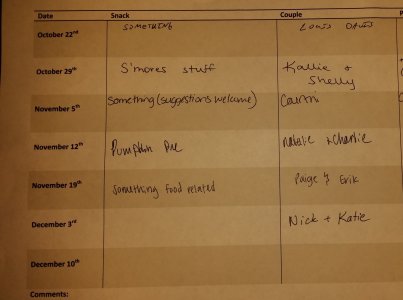 Date Snack Couple
October 22nd SOMETHING LOUIS DAVIS
October 29th S'mores stuff Kallie +
Shelly
November 5th Something (suggestions welcome)
November 12th Pumpkin Pie Natalie + Charlie
November 19th Something food related Paige & Erik
December 3rd Nick + Katie
December 10th
Comments: